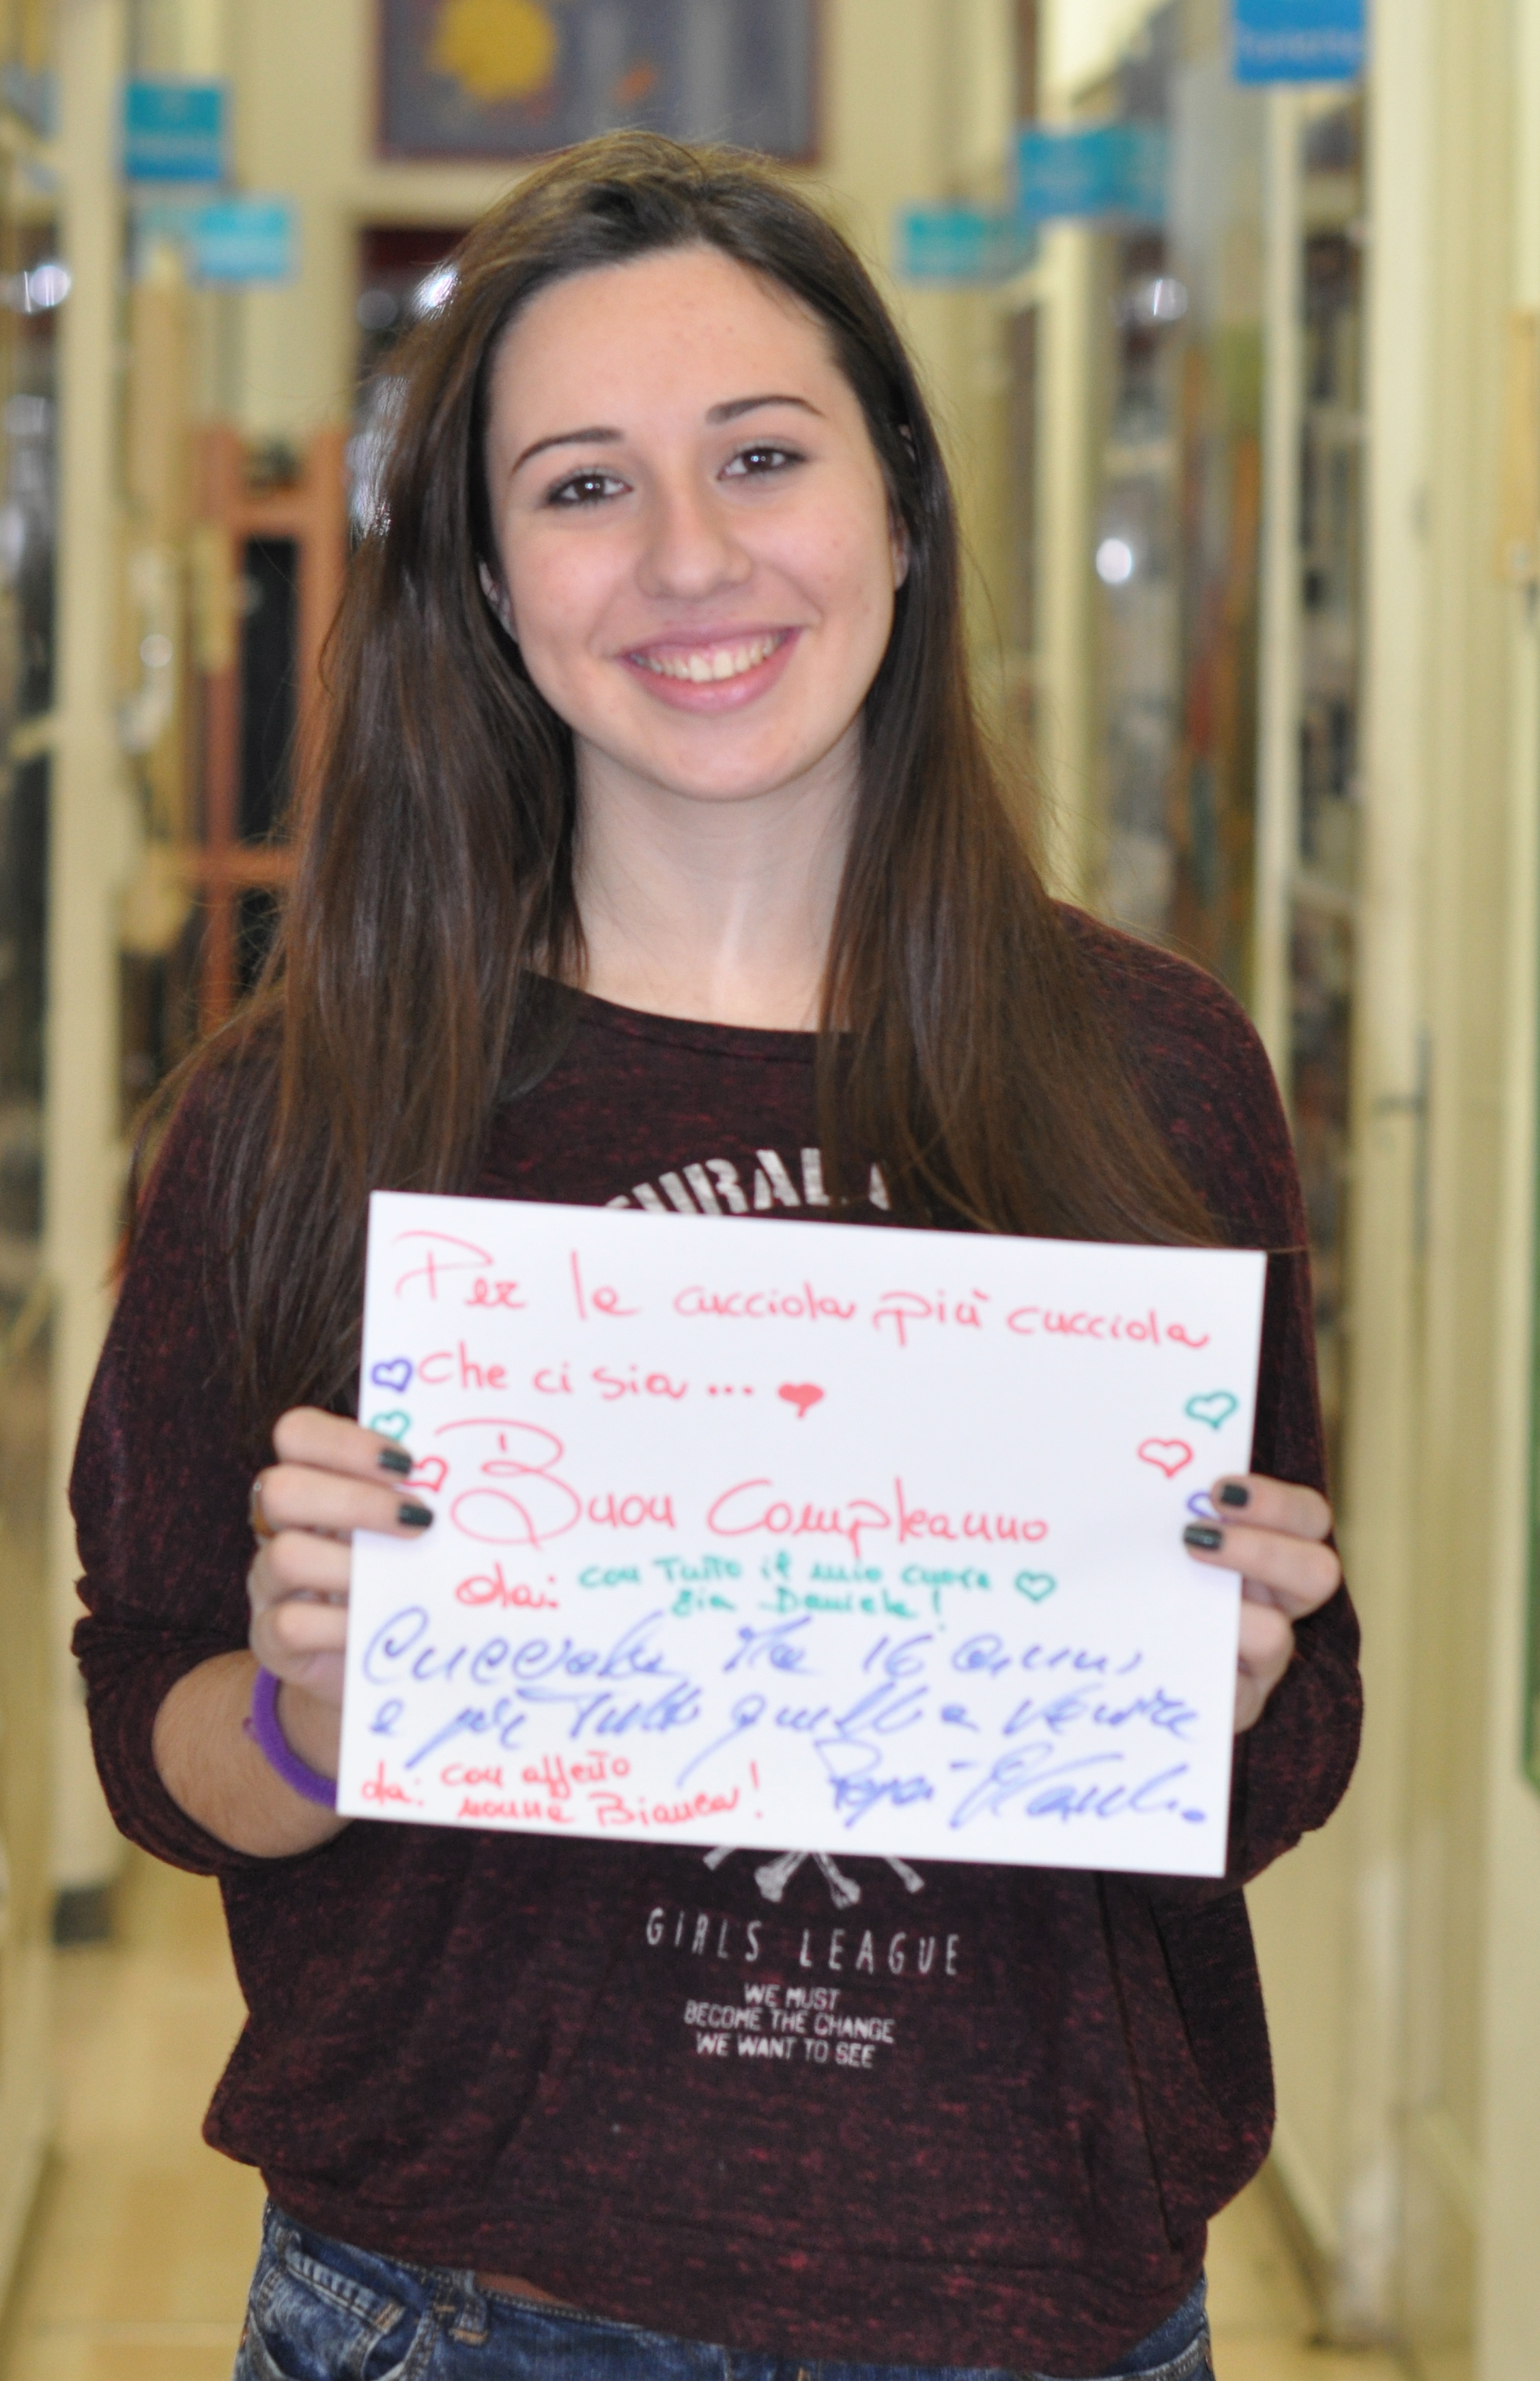 Per la cucciola più cucciola
che ci sia...
Buon Compleanno
da: con tutto il mio cuore
zia Daniela!
Cucciola Ma 16 anni
e poi tutti quelli a venire
Papà
da: con affetto
nonna Bianca!
GIRLS LEAGUE
WE MUST
BECOME THE CHANGE
WE WANT TO SEE